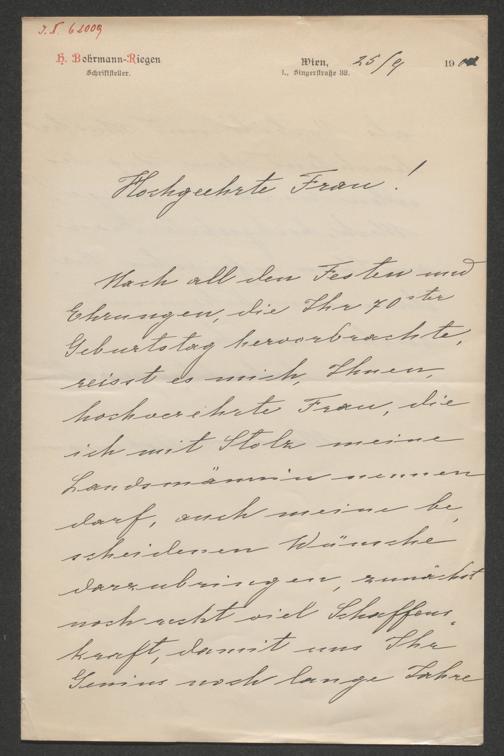 I. N. 62009
H. Bohrmann-Riegen
Schriftsteller.
Wien, 25/9 190
I., Singerstraße 32.
Hochgeehrte Frau!
Nach all den Festen und
Ehrungen, die Ihr 70ster
Geburtstag hervorbrachte,
reisst es mich, Ihnen,
hochverehrte Frau, die
ich mit Stolz meine
Landsmännin nennen
darf, auch meine be
scheidenen Wünsche
darzubringen, zunächst
noch recht viel Schaffens-
kraft, damit uns Ihr
Genius noch lange Jahre